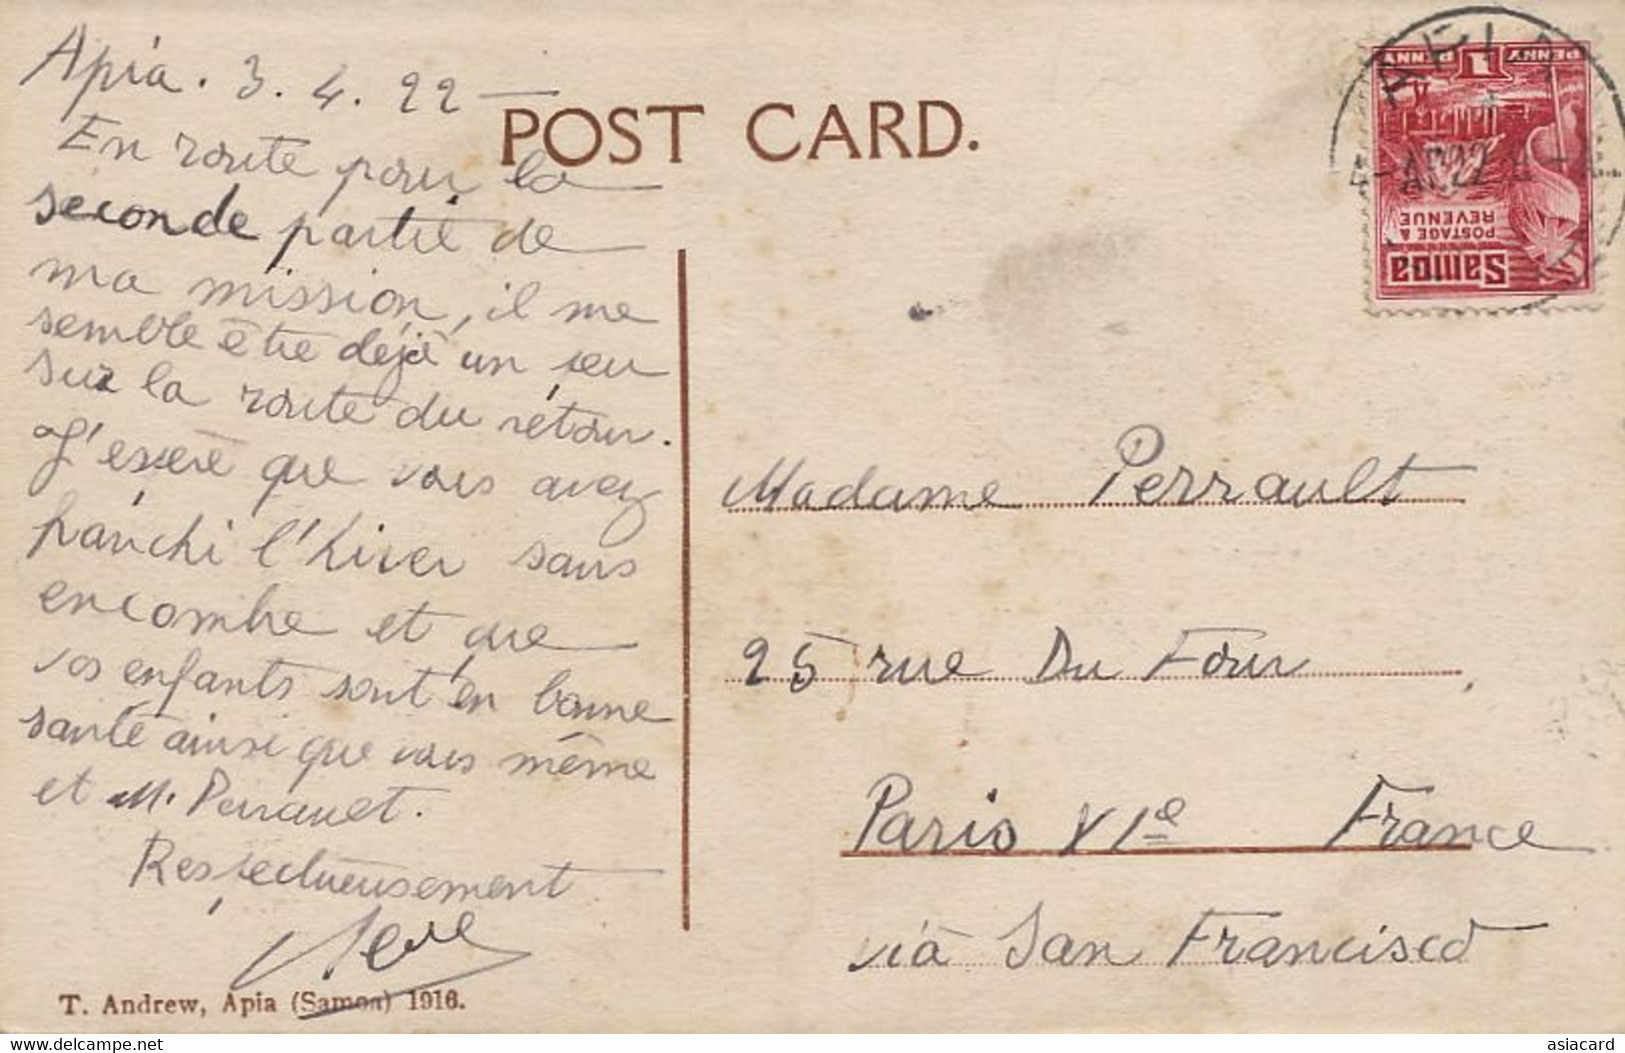 Apia. 3. 4. 22
En route pour la
seconde partie de
ma mission, il me
semble être déjà un peu
sur la route du retour.
J'espère que vous avez
franchi l'hiver sans
encombre et que
vos enfants sont en bonne
santé ainsi que vous même
et M. Perrault.
Respectueusement
T. Andrew, Apia (Samoa) 1916.
POST CARD.
APIA
AP.22
Samoa
POSTAGE &
REVENUE
PENNY 1 PENNY
Madame Perrault
25 rue Du Four
Paris VIe France
via San Francisco
delcampe.net
asiacard